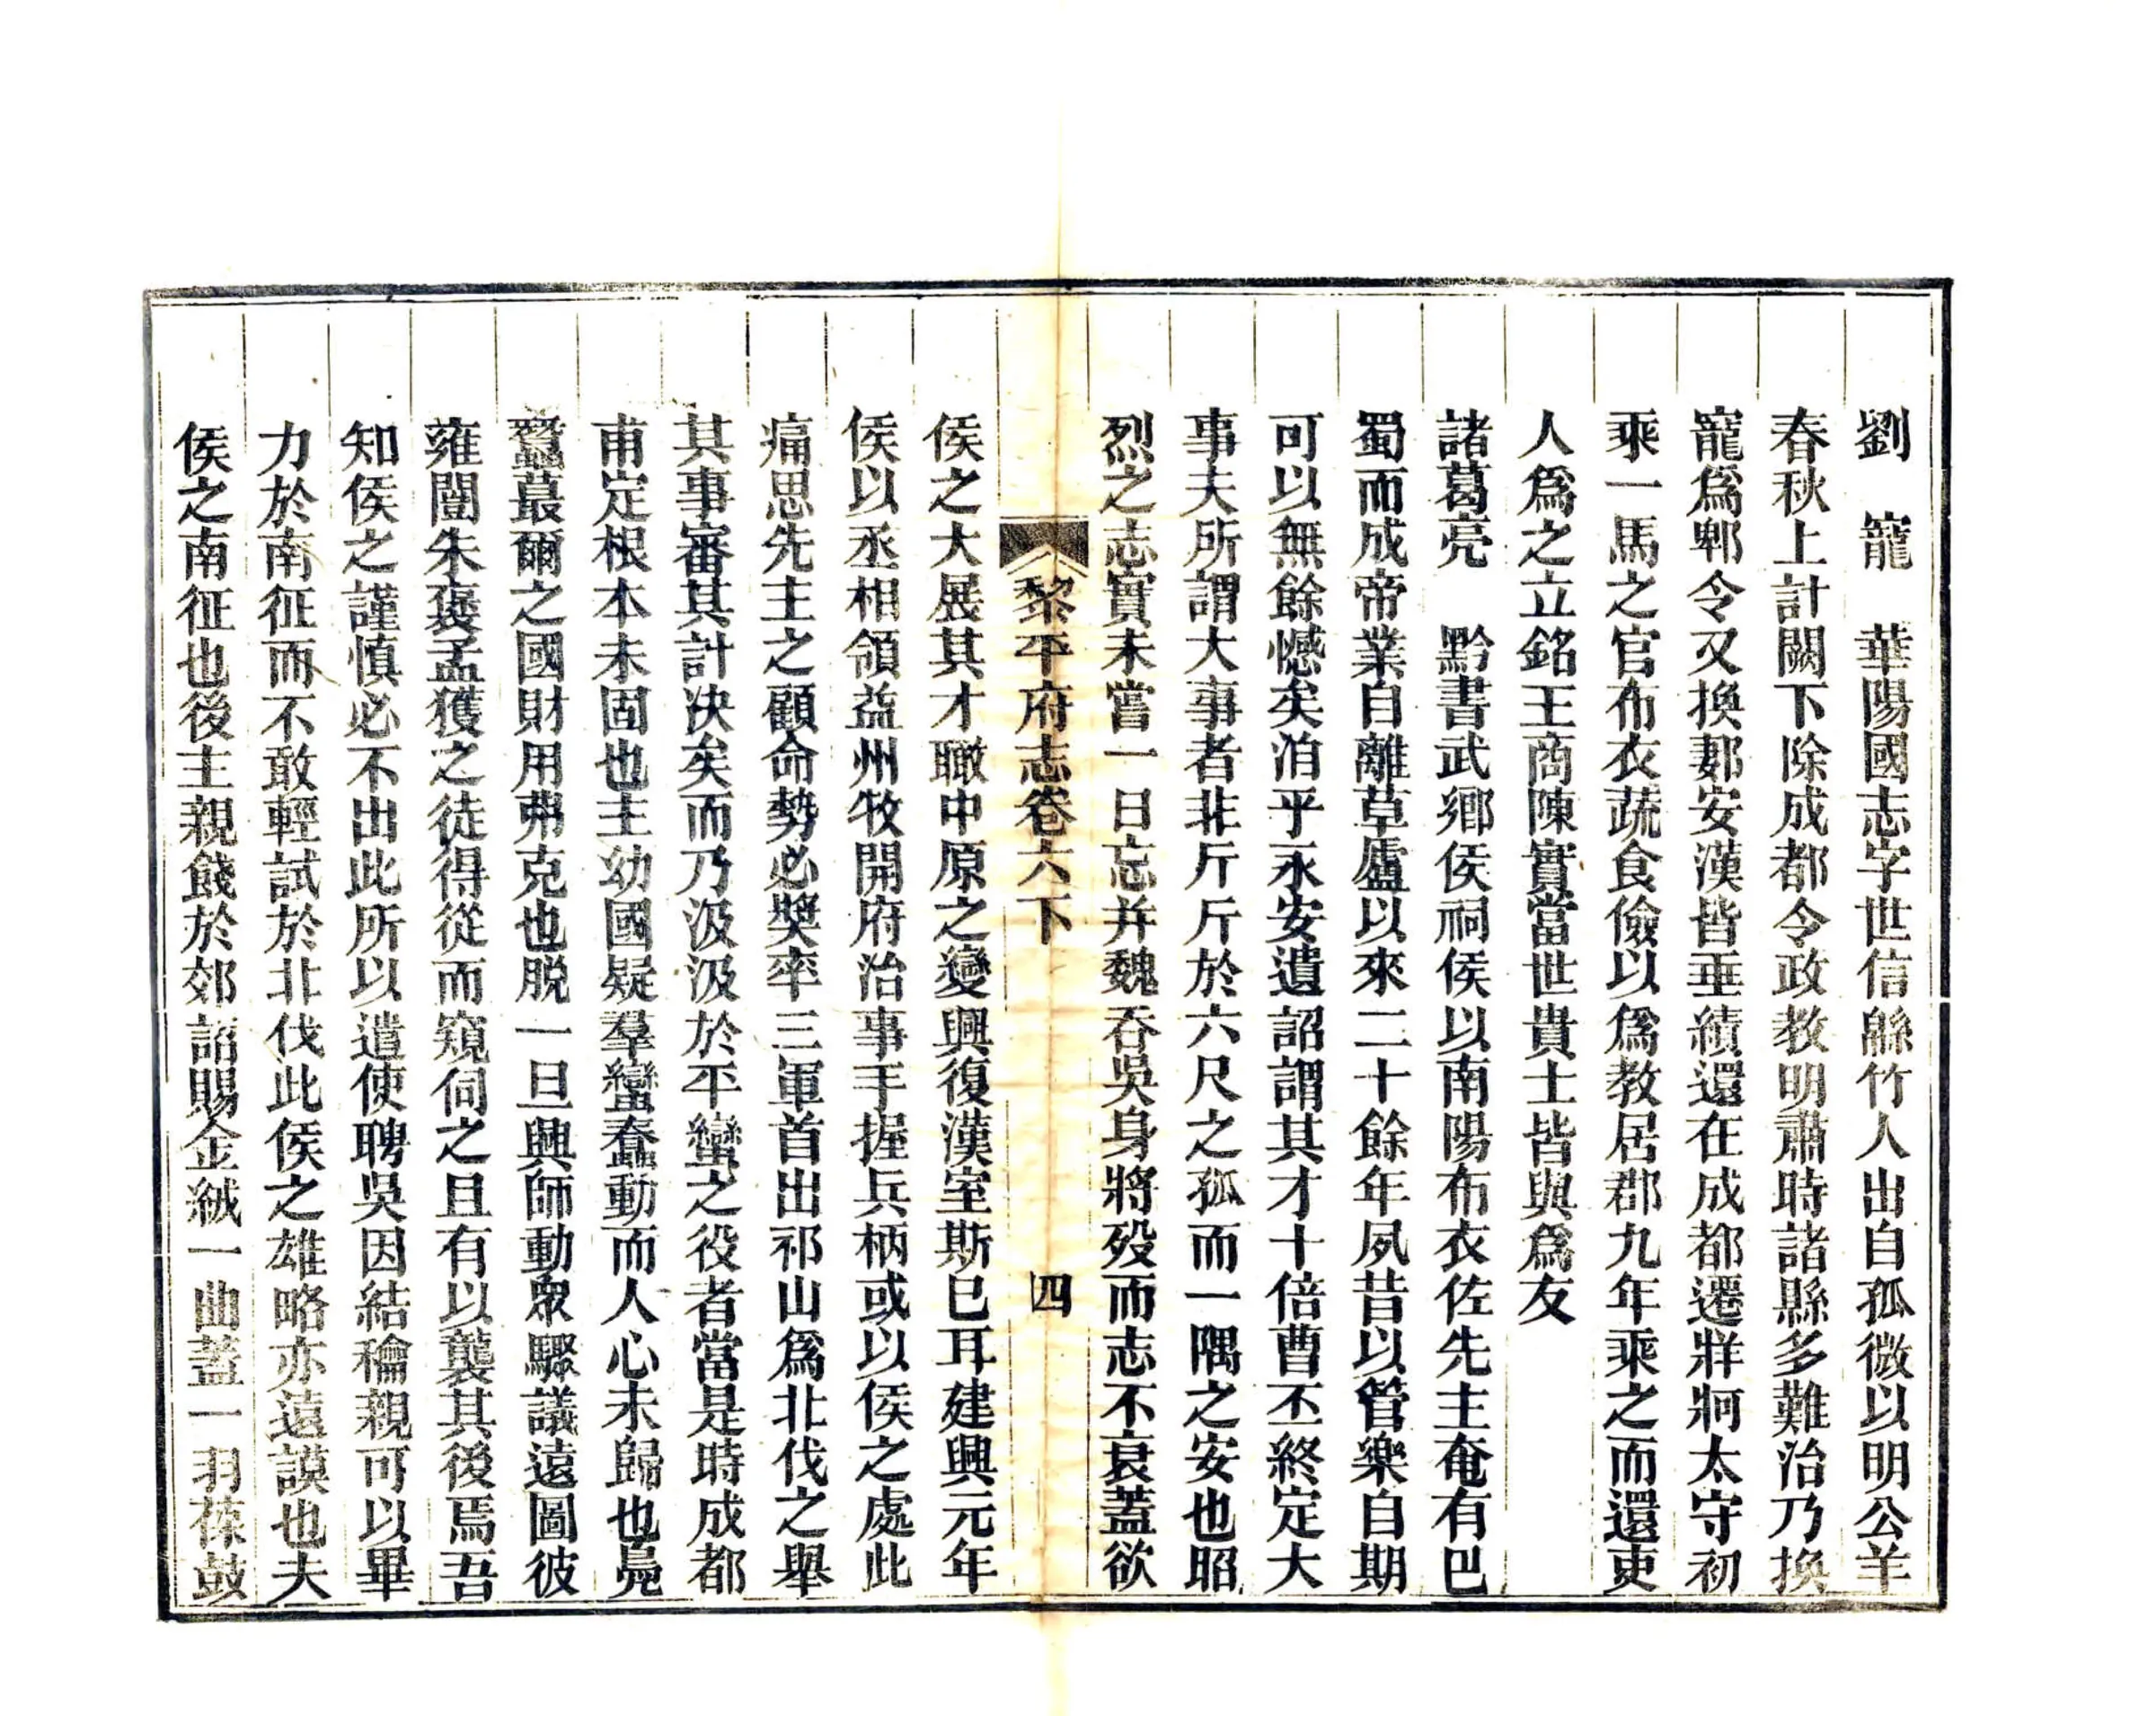 劉　寵　華陽國志字世信緜竹人出自孤微以明公羊
春秋上計闕下除成都令政教明肅時諸縣多難治乃換
寵爲郫令又換郪安漢皆垂績還在成都遷牂牁太守初
乘一馬之官布衣蔬食儉以爲教居郡九年乘之而還吏
人爲之立銘王商陳實當世貴士皆與爲友
諸葛亮　黔書武鄉侯祠侯以南陽布衣佐先主奄有巴
蜀而成帝業自離草廬以來二十餘年夙昔以管樂自期
可以無餘憾矣洎乎永安遺詔謂其才十倍曹丕終定大
事夫所謂大事者非斤斤於六尺之孤而一隅之安也昭
烈之志實未嘗一日忘并魏吞吳身將殁而志不衰蓋欲
黎平府志卷六下　四
侯之大展其才瞰中原之變興復漢室斯已耳建興元年
侯以丞相領益州牧開府治事手握兵柄或以侯之處此
痛思先主之顧命勢必獎率三軍首出祁山爲北伐之舉
其事審其計決矣而乃汲汲於平蠻之役者當是時成都
甫定根本未固也主幼國疑羣蠻蠢動而人心未歸也㒵
蠶蕞爾之國財用弗克也脱一旦興師動衆驟議遠圖彼
雍闓朱褒孟獲之徒得從而窺伺之且有以襲其後焉吾
知侯之謹慎必不出此所以遣使聘吳因結稐親可以畢
力於南征而不敢輕試於北伐此侯之雄略亦遠謨也夫
侯之南征也後主親餞於郊詔賜金絨一曲蓋一羽葆鼓